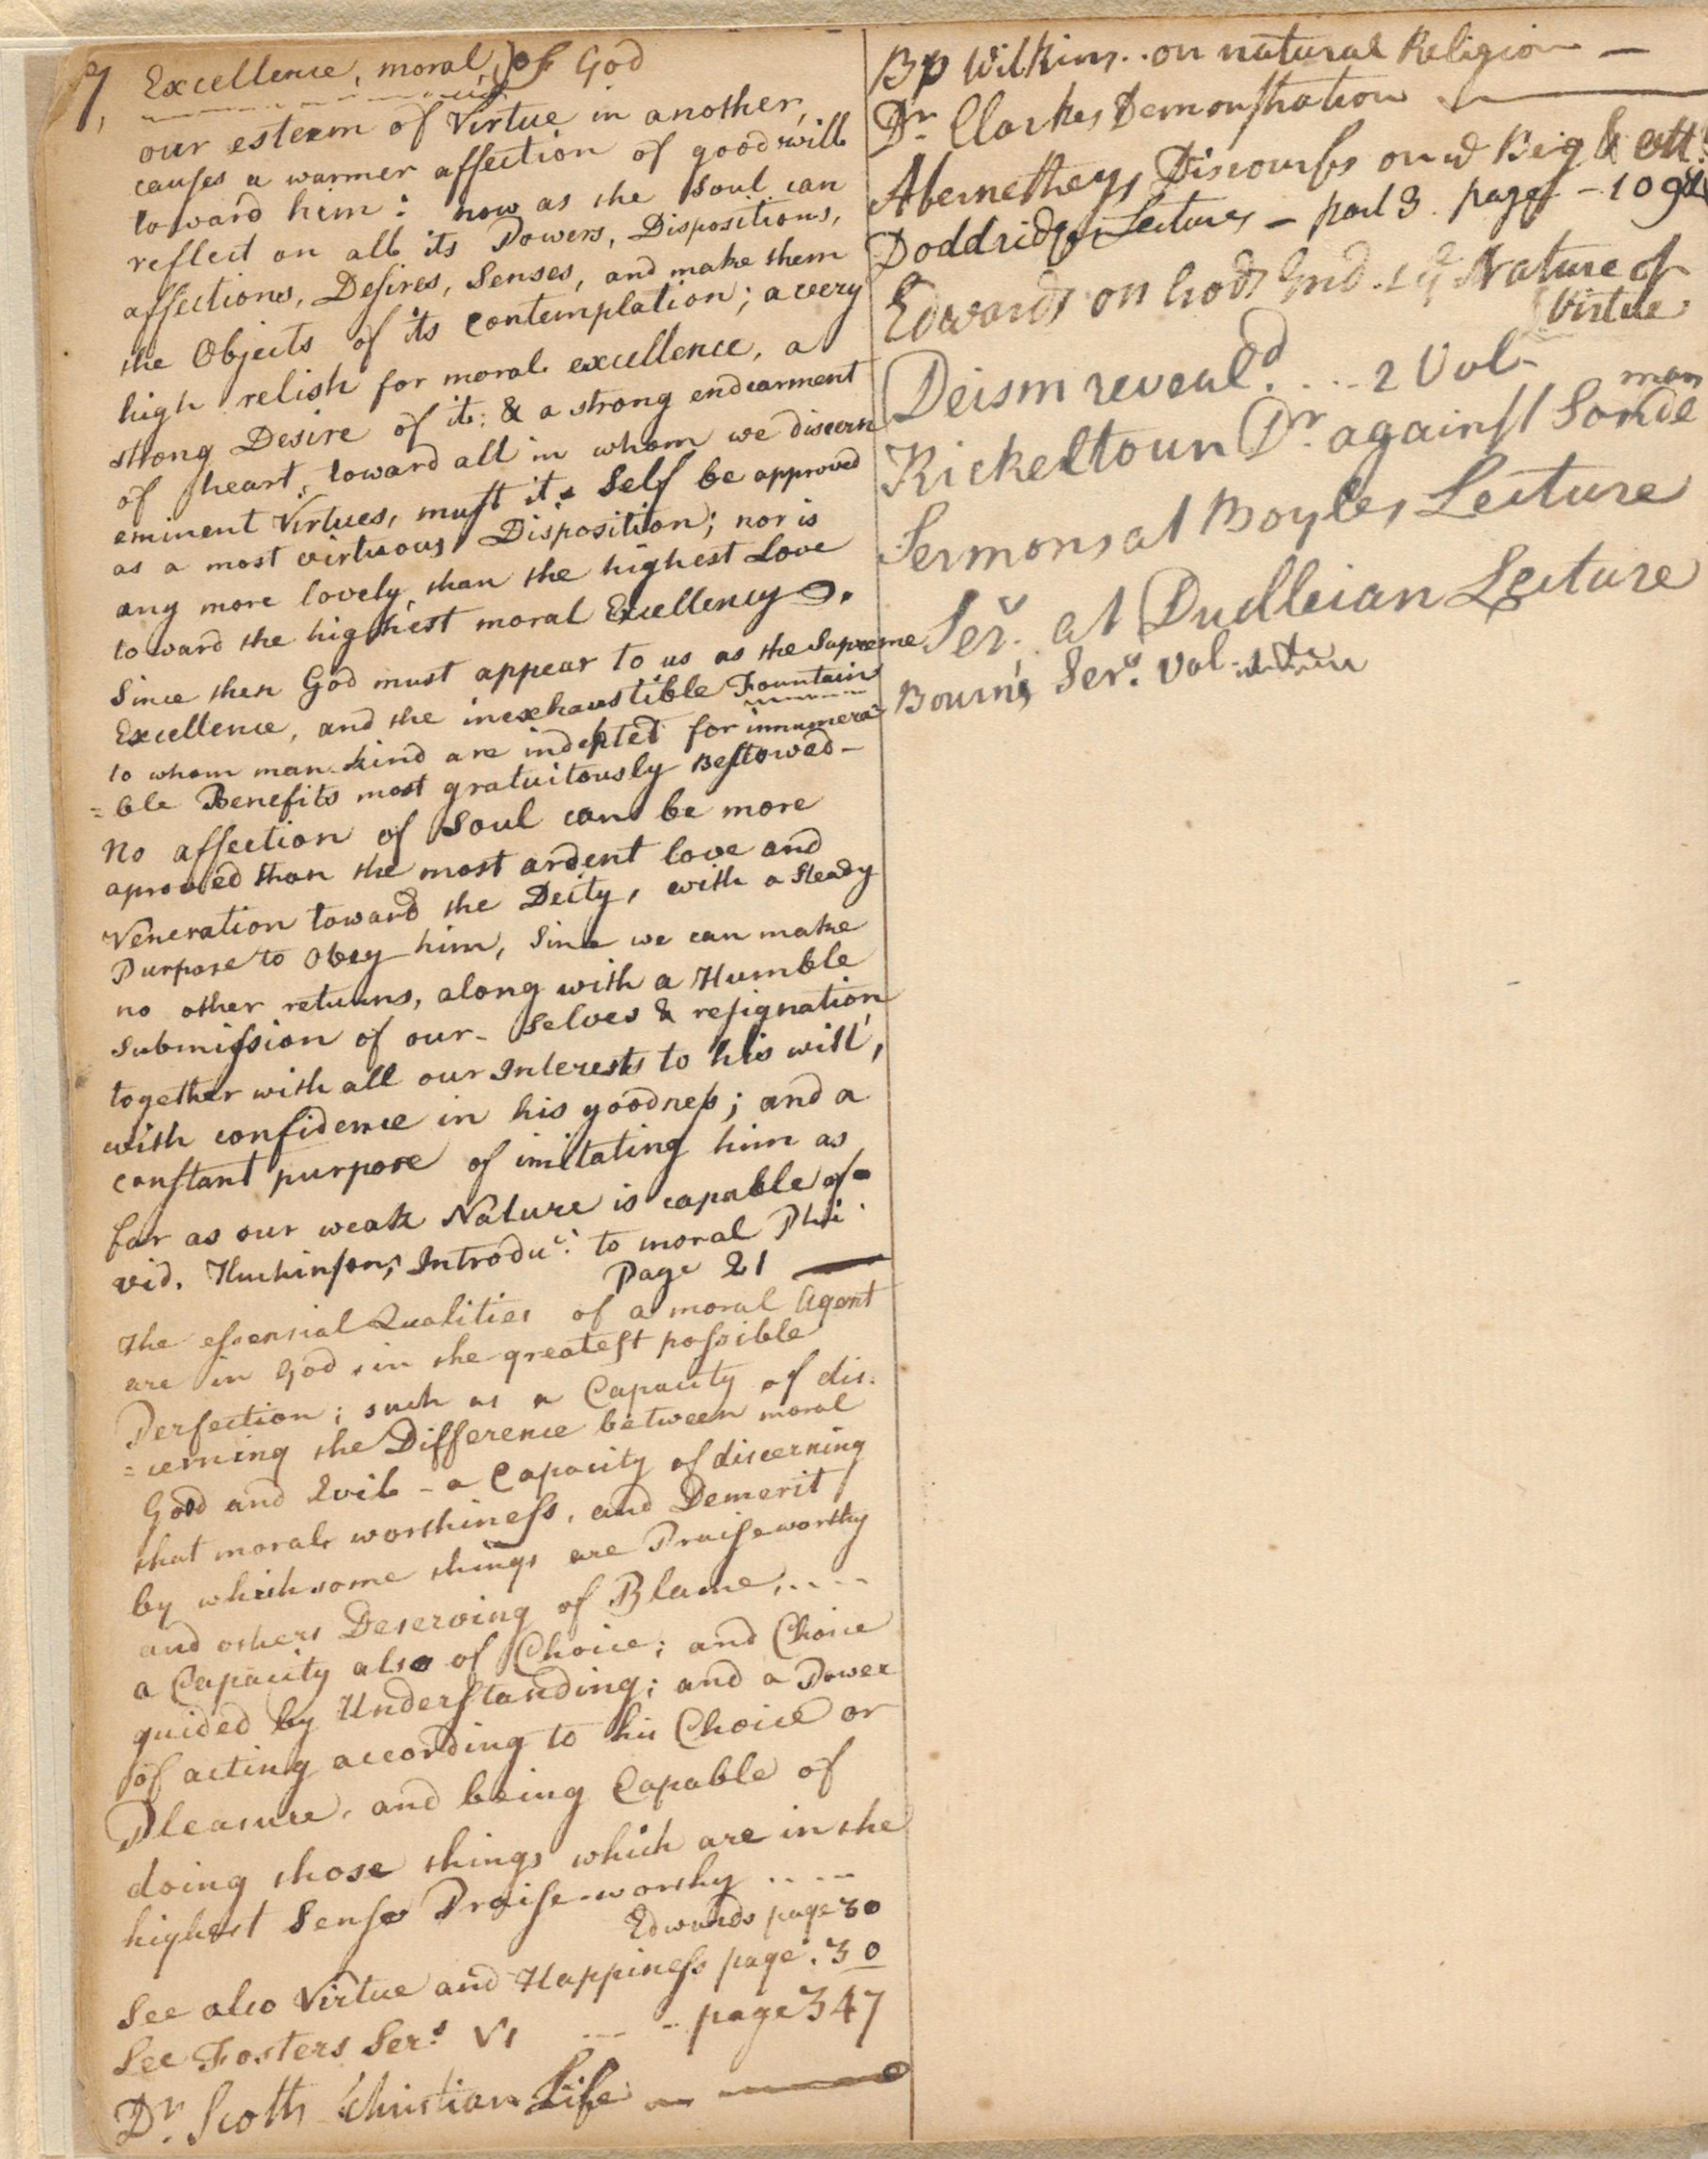 9, Excellence, moral,) of God
our esteem of Virtue in another,
causes a warmer affection of good will
toward him: now as the soul can
reflect on all its Powers, Dispositions,
affections, Desires, Senses, and make them
the Objects of its contemplation; a very
high relish for moral excellence, a
strong Desire of it: & a strong endearment
of heart, toward all in whom we discern
eminent Virtues, must its Self be approved
as a most virtuous Disposition; nor is
any more lovely, than the highest Love
toward the highest moral Excellency.
Since then God must appear to us as the Supreme
Excellence, and the inexhaustible Fountain
to whom man-kind are indepted for innumera-
=ble Benefits most gratuitously Bestowed-
No affection of Soul can be more
aproved than the most ardent love and
Veneration toward the Deity, with a Steady
Purpose to Obey him, Since we can make
no other returns, along with a Humble
submission of our-selves & resignation,
together with all our Interests to his will,
with confidence in his goodness; and a
constant purpose of imitating him as
far as our weak Nature is capable of-
vid. Huchinsons Introduc: to moral Phi:
Page 21
The essensial Qualities of a moral Agent
are in God, in the greatest possible
Perfection; such as a Capacity of dis:
=cerning the Difference between moral
Good and Evil - a Capacity of discerning
that moral worthiness, and Demerit
by which some things are Praiseworthy
and others Deserving of Blame,....
a Capacity also of Choice; and Choice
guided by Understanding; and a Power
of acting according to his Choice or
Pleasure, and being Capable of
doing those things which are in the
highest Sense Praise-worthy ....
Edwards page 30
See also Virtue and Happiness page. 30
See Fosters Ser.s V1 --- - page 347
Dr. Scotts Christian Life
Bp Wilkins.. on natural Religion —
Dr. Clarkes Demonstration
Abernetheys Discourses on ye Beig & Att:
Doddridge Lectures - part 3. page - 109
Edwards on Gods End. & ye Nature of
Virtue
Deism reveal'd.... 2 Vol-
Rickeltoun Dr. against Sonde
man
Sermons at Boyles Lecture
Ser: at Dudleian Lecture
Bourns Ser.s Vol-